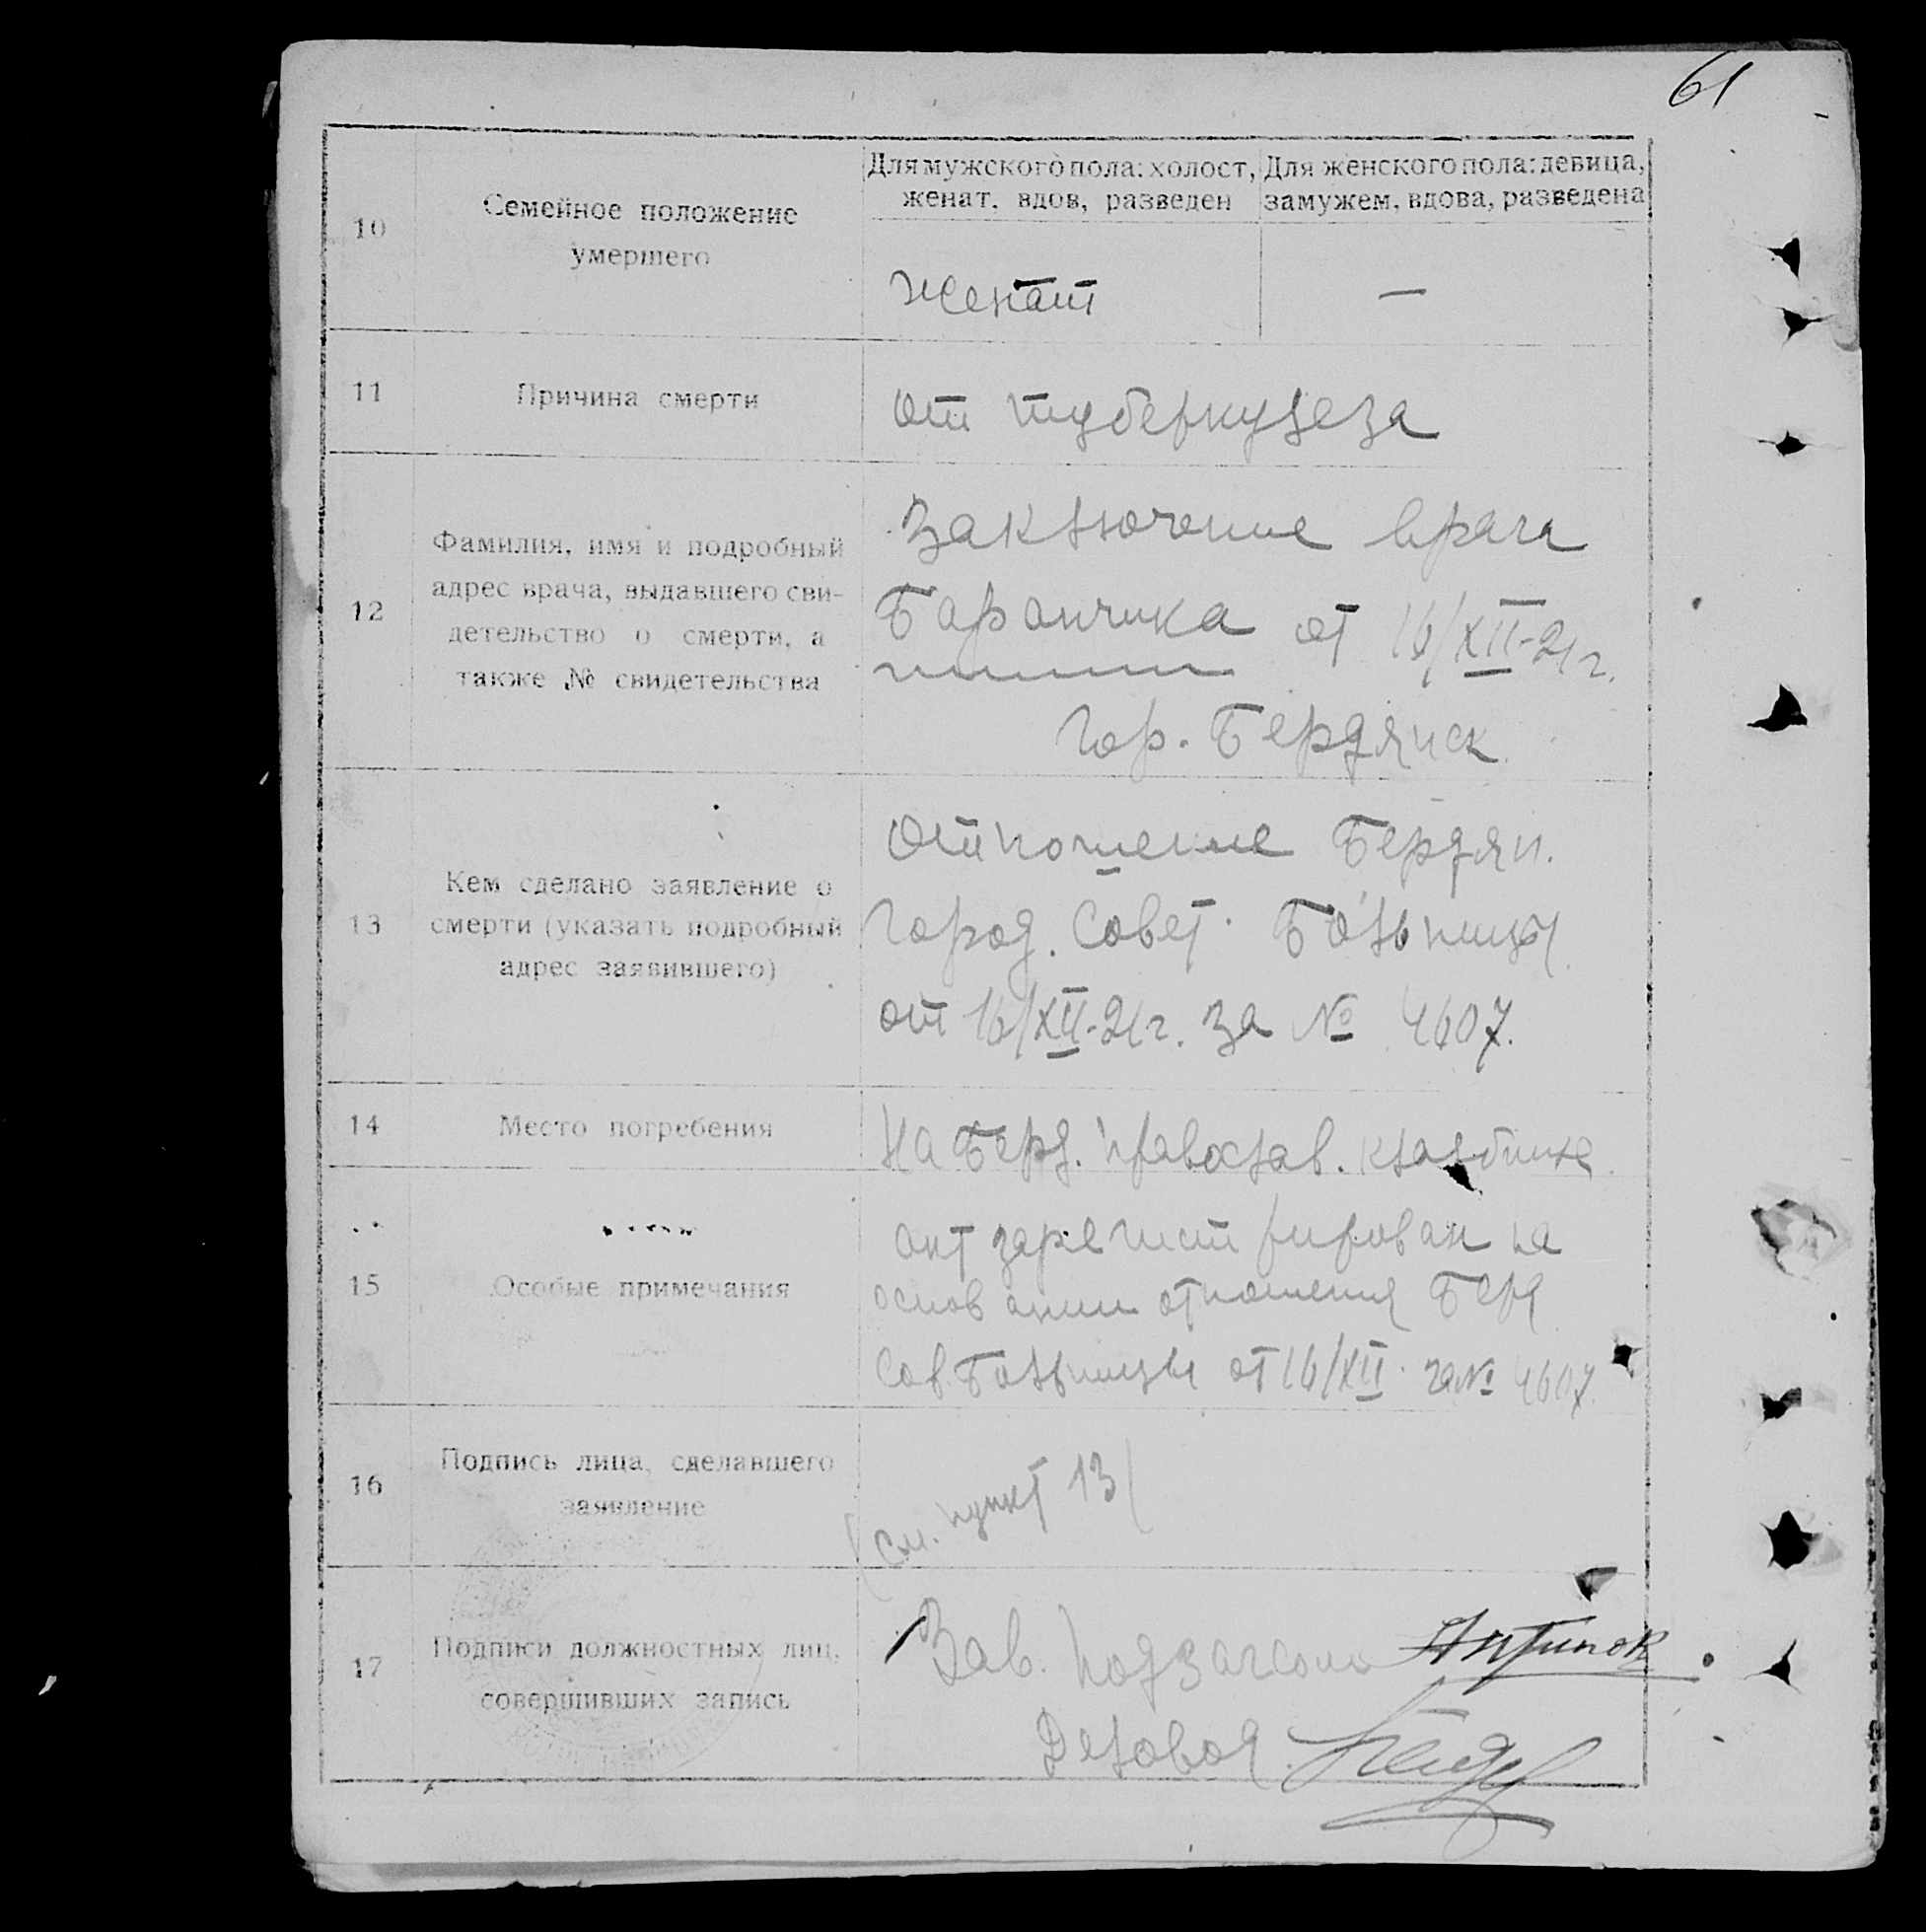 61
Для мужского пола: холост, женат, вдов, разведен
Для женского пола: девица, замужем, вдова, разведена
10
Семейное положение
умершего
женат
—
11
Причина смерти
от туберкулеза
12
Фамилия, имя и подробный
адрес врача, выдавшего сви-
детельство о смерти, а
также № свидетельства
Заключение врача
Баранчика от 16/XII-21 г.
гор. Бердянск
13
Кем сделано заявление о
смерти (указать подробный
адрес заявившего)
Отношение Бердян.
Город. Совет. Больницы
от 16/XII-21 г. за № 4607.
14
Место погребения
на Берд. православ. кладбище
15
Особые примечания
акт зарегистрирован на
основании отношения Берд
Сов Больницы от 16/XII за № 4607.
16
Подпись лица, сделавшего
заявление
(см. пункт 13)
17
Подписи должностных лиц,
совершивших запись
Зав. подзагсом
Деловод.